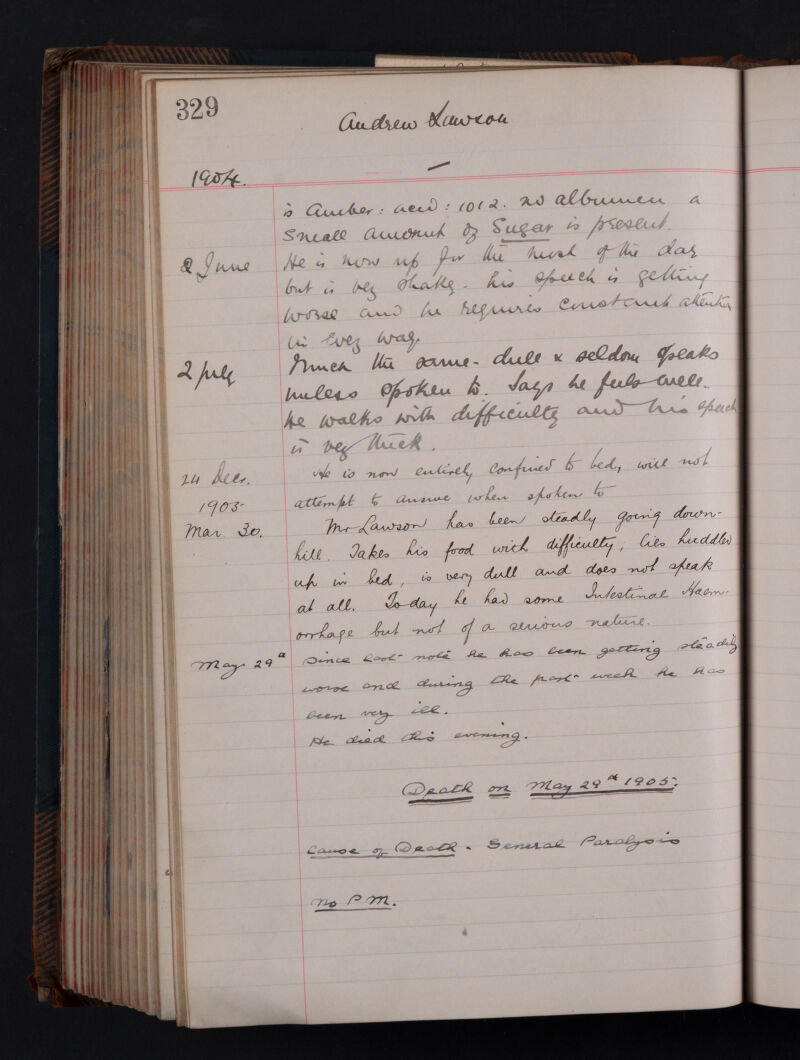 329
Andrew Lawson
1904.
is Amber: acid: 1012. no albumen a
small amount of Sugar is present.
2 June He is now up for the most of the day
but is very shaky. his speech is getting
worse and he requires constant attention
in every way.
2 July Much the same - dull & seldom speaks
unless spoken to. Says he feels well.
He walks with difficulty and his speech
is very thick.
24 Decr. He is now entirely confined to bed, will not
1905 attempt to answer when spoken to
Mar. 30. Mr Lawson has been steadly going down-
hill. Takes his food with difficulty, lies huddled
up in bed, is very dull and does not speak
at all. To-day he had some Intestinal Haem-
orrhage but not of a serious nature.
May 29th Since last note he has been getting steadily
worse and during the past week he has
been very ill.
He died this evening.
Death on May 29th 1905.
Cause of Death - General Paralysis
No P.M.